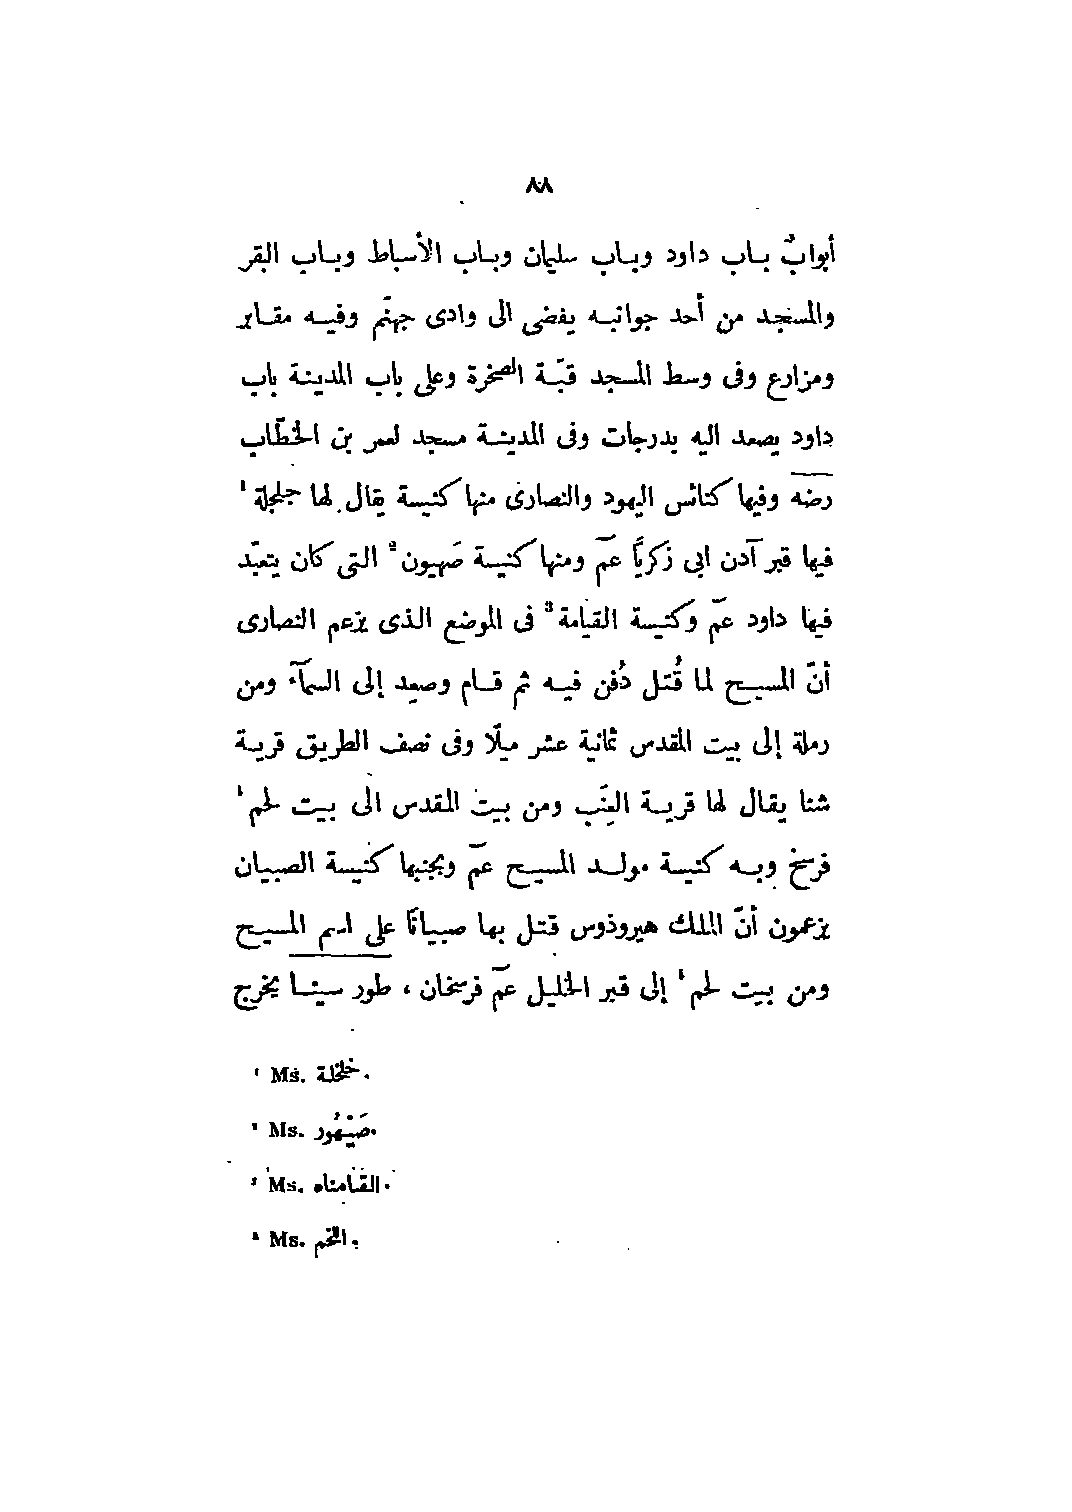 ٨٨
أبوابٌ باب داود وباب سليمان وباب الأسباط وباب البقر
والمسجد من أحد جوانبه يفضى الى وادى جهنّم وفيه مقابر
ومزارع وفى وسط المسجد قبّة الصخرة وعلى باب المدينة باب
داود يصعد اليه بدرجات وفى المدينة مسجد لعمر بن الخطّاب
رضه وفيها كنائس اليهود والنصارى منها كنيسة يقال لها جلجلة ¹
فيها قبر آدن ابى زكريّا عمّ ومنها كنيسة صَهيون ² التى كان يتعبّد
فيها داود عمّ وكنيسة القيامة ³ فى الموضع الذى يزعم النصارى
أنّ المسيح لما قُتل دُفن فيه ثم قام وصعد إلى السمآء ومن
رملة إلى بيت المقدس ثمانية عشر ميلًا وفى نصف الطريق قرية
شتا يقال لها قرية العنَب ومن بيت المقدس الى بيت لحم ⁴
فرسخ وبه كنيسة مولد المسيح عمّ وبجنبها كنيسة الصبيان
يزعمون أنّ الملك هيروذوس قتل بها صبيانًا على اسم المسيح
ومن بيت لحم ⁴ إلى قبر الخليل عمّ فرسخان ، طور سينا يخرج
¹ Ms. خلخلة.
² Ms. صَيْهُور.
³ Ms. القامناه.
⁴ Ms. اللخم.